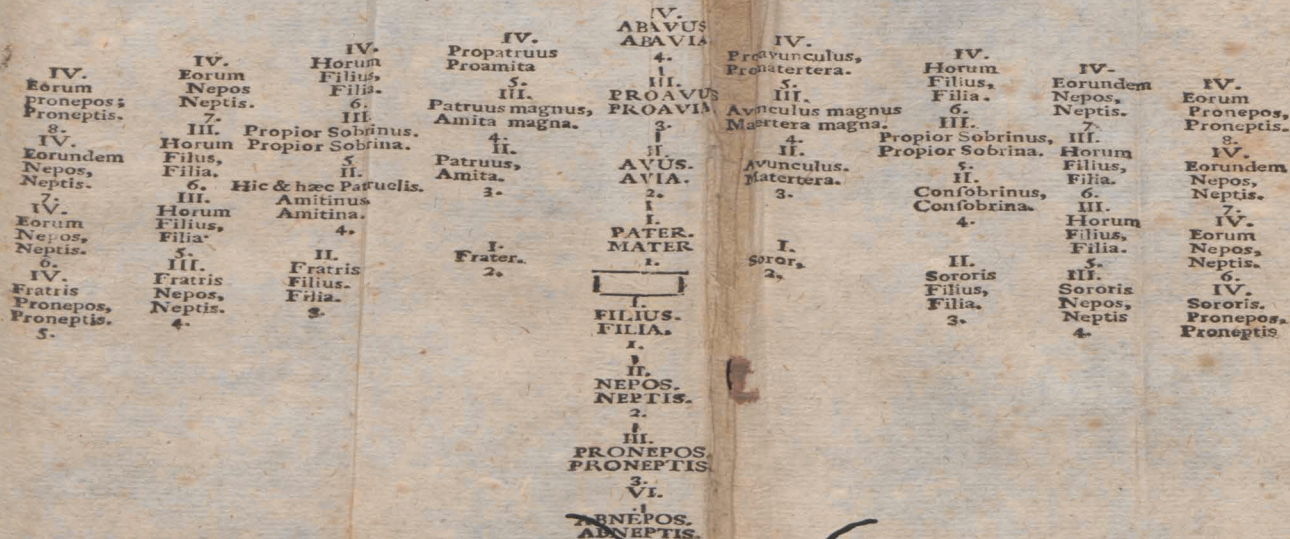 IV.
Eorum
pronepos;
Proneptis.
8.
IV.
Eorundem
Nepos,
Neptis.
7.
IV.
Eorum
Nepos,
Neptis.
6.
IV.
Fratris
Pronepos,
Proneptis.
5.
IV.
Eorum
Nepos
Neptis.
7.
III.
Horum
Filus,
Filia.
6.
III.
Horum
Filius,
Filia.
5.
III.
Fratris
Nepos,
Neptis.
4.
IV.
Horum
Filius,
Filia.
6.
III.
Propior Sobrinus.
Propior Sobrina.
5.
II.
Hic & hæc Patruelis.
Amitinus
Amitina.
4.
II.
Fratris
Filius.
Filia.
3.
IV.
Propatruus
Proamita
5.
III.
Patruus magnus,
Amita magna.
4.
II.
Patruus,
Amita.
3.
I.
Frater.
2.
IV.
ABAVUS
ABAVIA
4.
III.
PROAVUS
PROAVIA
3.
II
AVUS.
AVIA.
2.
I.
PATER.
MATER
1.
I.
FILIUS.
FILIA.
1.
II.
NEPOS.
NEPTIS.
2.
III.
PRONEPOS.
PRONEPTIS
3.
VI.
ABNEPOS.
ABNEPTIS.
IV.
Proavunculus,
Promatertera.
5.
III.
Avunculus magnus
Maertera magna.
4.
II.
Avunculus.
Matertera.
3.
I.
Soror,
2.
IV.
Horum
Filius,
Filia.
6.
III.
Propior Sobrinus,
Propior Sobrina.
5.
II.
Conſobrinus,
Conſobrina.
4.
II.
Sororis
Filius,
Filia.
3.
IV.
Eorundem
Nepos,
Neptis.
7.
III.
Horum
Filius,
Filia.
6.
III.
Horum
Filius,
Filia.
5.
III.
Sororis
Nepos,
Neptis
4.
IV.
Eorum
Pronepos,
Proneptis.
8.
IV.
Eorundem
Nepos,
Neptis.
7.
IV.
Eorum
Nepos,
Neptis.
6.
IV.
Sororis.
Pronepos,
Proneptis